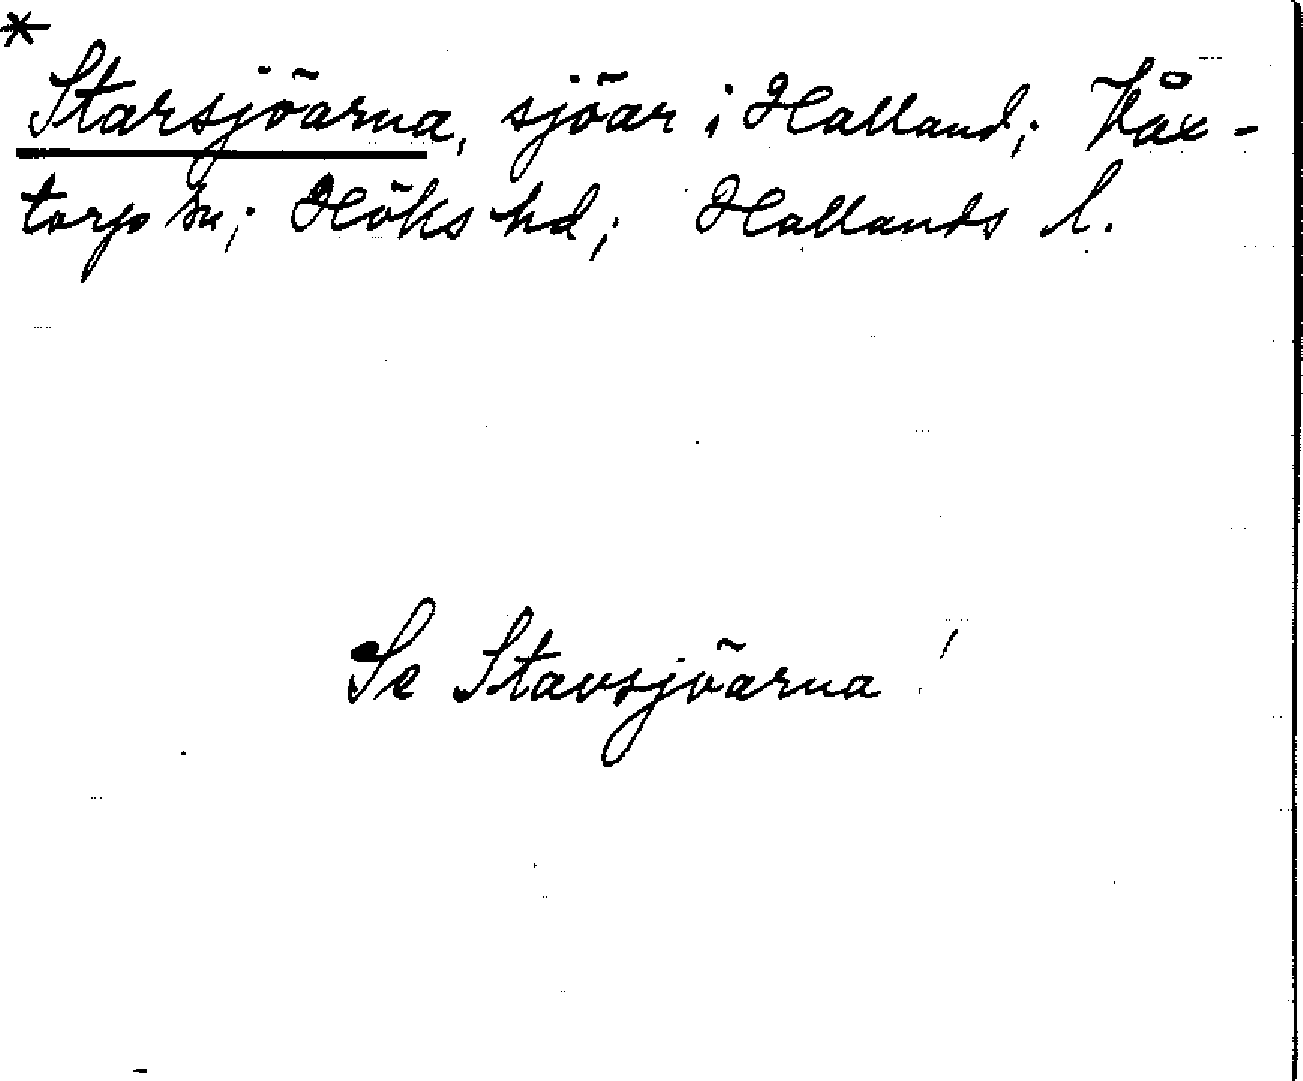 * Starsjöarna, sjöar i Halland; Våx-
torp sn; Höks hd; Hallands l.
Se Stavsjöarna!